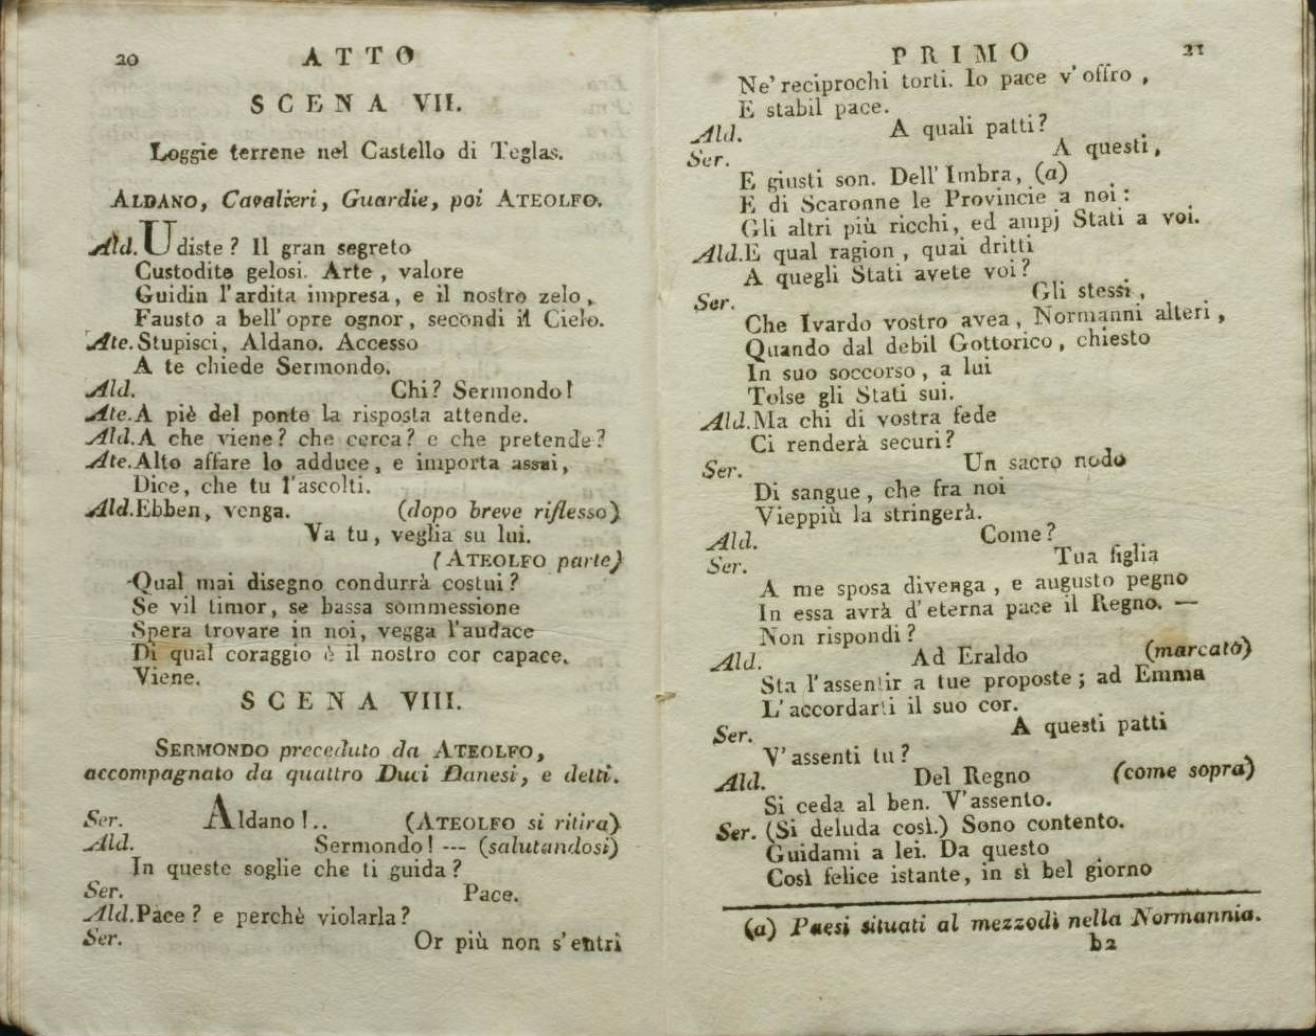 20 ATTO
SCENA VII.
Loggie terrene nel Castello di Teglas.
ALDANO, Cavalieri, Guardie, poi ATEOLFO.
Ald. Udiste? Il gran segreto
Custodite gelosi. Arte, valore
Guidin l'ardita impresa, e il nostro zelo,
Fausto a bell'opre ognor, secondi il Cielo.
Ate. Stupisci, Aldano. Accesso
A te chiede Sermondo.
Ald. Chi? Sermondo!
Ate. A piè del ponte la risposta attende.
Ald. A che viene? che cerca? e che pretende?
Ate. Alto affare lo adduce, e importa assai,
Dice, che tu l'ascolti.
Ald. Ebben, venga. (dopo breve riflesso)
Va tu, veglia su lui.
(ATEOLFO parte)
Qual mai disegno condurrà costui?
Se vil timor, se bassa sommessione
Spera trovare in noi, vegga l'audace
Di qual coraggio è il nostro cor capace.
Viene.
SCENA VIII.
SERMONDO preceduto da ATEOLFO,
accompagnato da quattro Duci Danesi, e detti.
Ser. Aldano!.. (ATEOLFO si ritira)
Ald. Sermondo! --- (salutandosi)
In queste soglie che ti guida?
Ser. Pace.
Ald. Pace? e perchè violarla?
Ser. Or più non s'entri
PRIMO 21
Ne' reciprochi torti. Io pace v'offro,
E stabil pace.
Ald. A quali patti?
Ser. A questi,
E giusti son. Dell'Imbra, (a)
E di Scaronne le Provincie a noi:
Gli altri più ricchi, ed ampj Stati a voi.
Ald. E qual ragion, quai dritti
A quegli Stati avete voi?
Ser. Gli stessi,
Che Ivardo vostro avea, Normanni alteri,
Quando dal debil Gottorico, chiesto
In suo soccorso, a lui
Tolse gli Stati sui.
Ald. Ma chi di vostra fede
Ci renderà securi?
Ser. Un sacro nodo
Di sangue, che fra noi
Vieppiù la stringerà.
Ald. Come?
Ser. Tua figlia
A me sposa divenga, e augusto pegno
In essa avrà d'eterna pace il Regno. —
Non rispondi?
Ald. Ad Eraldo (marcato)
Sta l'assentir a tue proposte; ad Emma
L'accordarti il suo cor.
Ser. A questi patti
V'assenti tu?
Ald. Del Regno (come sopra)
Si ceda al ben. V'assento.
Ser. (Si deluda così.) Sono contento.
Guidami a lei. Da questo
Così felice istante, in sì bel giorno
(a) Paesi situati al mezzodì nella Normannia.
b2